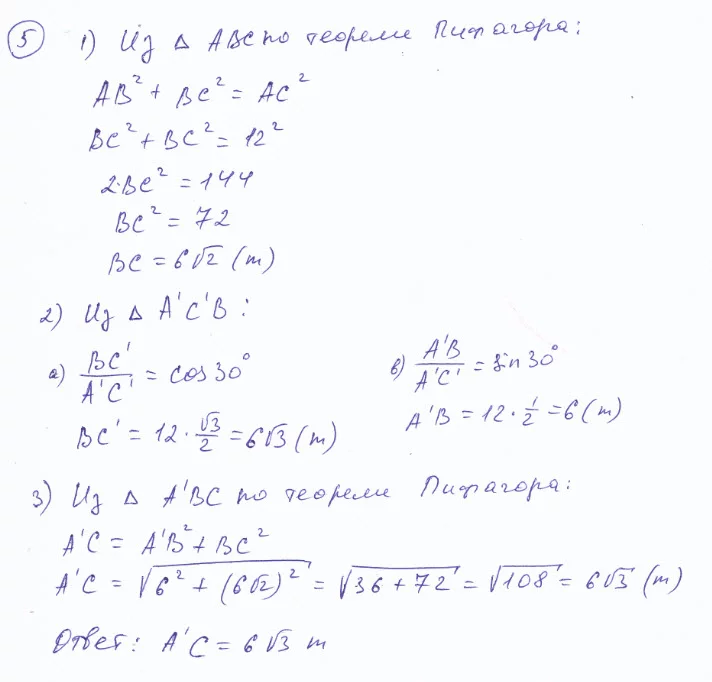 5 1) Из △ ABC по теореме Пифагора:
AB² + BC² = AC²
BC² + BC² = 12²
2·BC² = 144
BC² = 72
BC = 6√2 (m)
2) Из △ A'C'B :
a) BC'/A'C' = cos 30°
BC' = 12 · √3/2 = 6√3 (m)
в) A'B/A'C' = sin 30°
A'B = 12 · 1/2 = 6 (m)
3) Из △ A'BC по теореме Пифагора:
A'C = A'B² + BC²
A'C = √(6² + (6√2)²) = √(36 + 72) = √108 = 6√3 (m)
Ответ: A'C = 6√3 m